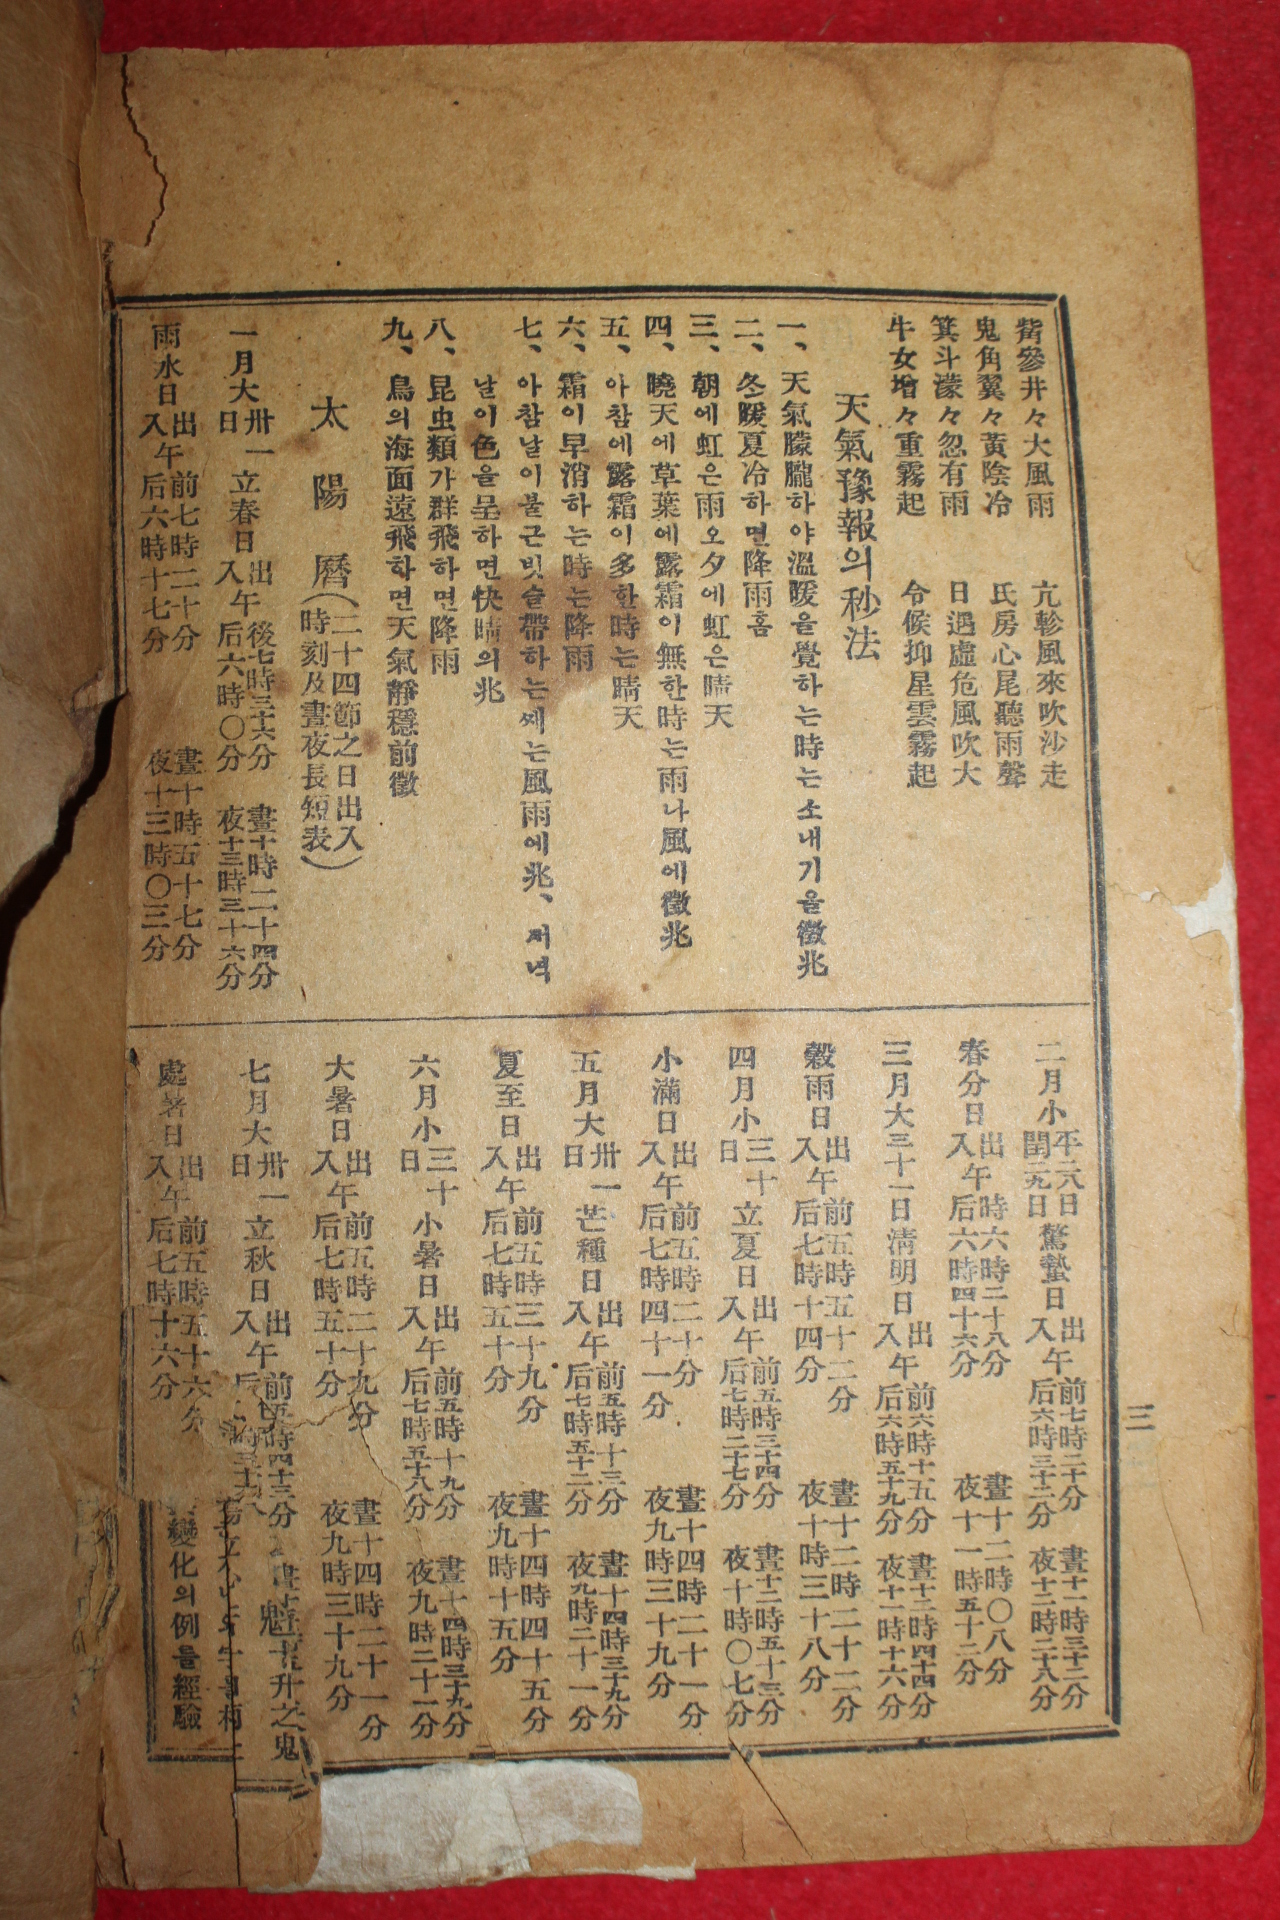 觜參井々大風雨 亢軫風來吹沙走
鬼角翼々黃陰冷 氐房心尾聽雨聲
箕斗濛々忽有雨 日遇虛危風吹大
牛女增々重霧起 令候抑星雲霧起
天氣豫報의秒法
一、天氣朦朧하야溫暖을覺하는時는소내기을徵兆
二、冬暖夏冷하면降雨홈
三、朝에虹은雨오夕에虹은晴天
四、曉天에草葉에露霜이無한時는雨나風에徵兆
五、아참에露霜이多한時는晴天
六、霜이早消하는時는降雨
七、아참날이불근빗슬帶하는쎄는風雨에兆、저녁
날이色을呈하면快晴의兆
八、昆虫類가群飛하면降雨
九、鳥의海面遠飛하면天氣靜穩前徵
太陽曆(二十四節之日出入
時刻及晝夜長短表)
一月大卅一日立春日 出午後七時三十六分 入午后六時〇分 晝十時二十四分 夜十三時三十六分
雨水日 出午前七時二十分 入午后六時十七分 晝十時五十七分 夜十三時〇三分
三
二月小平二八日 閏二九日 驚蟄日 出午前七時二十分 入午后六時三十二分 晝十一時三十二分 夜十二時二十八分
春分日 出午時六時三十八分 入午后六時四十六分 晝十二時〇八分 夜十一時五十二分
三月大三十一日淸明日 出午前六時十五分 入午后六時五十九分 晝十二時四十四分 夜十一時十六分
穀雨日 出午前五時五十二分 入午后七時十四分 晝十二時二十二分 夜十時三十八分
四月小三十日立夏日 出午前五時三十四分 入午后七時二十七分 晝十三時五十三分 夜十時〇七分
小滿日 出午前五時二十分 入午后七時四十一分 晝十四時二十一分 夜九時三十九分
五月大卅一日芒種日 出午前五時十三分 入午后七時五十二分 晝十四時三十九分 夜九時二十一分
夏至日 出午前五時三十九分 入午后七時五十分 晝十四時四十五分 夜九時十五分
六月小三十日小暑日 出午前五時十九分 入午后七時五十八分 晝十四時三十九分 夜九時二十一分
大暑日 出午前五時二十九分 入午后七時五十分 晝十四時二十一分 夜九時三十九分
七月大卅一日立秋日 出午前五時四十三分 入午
魁 升之鬼
處暑日 出午前五時五十六分 入午后七時十六分
變化의例을經驗